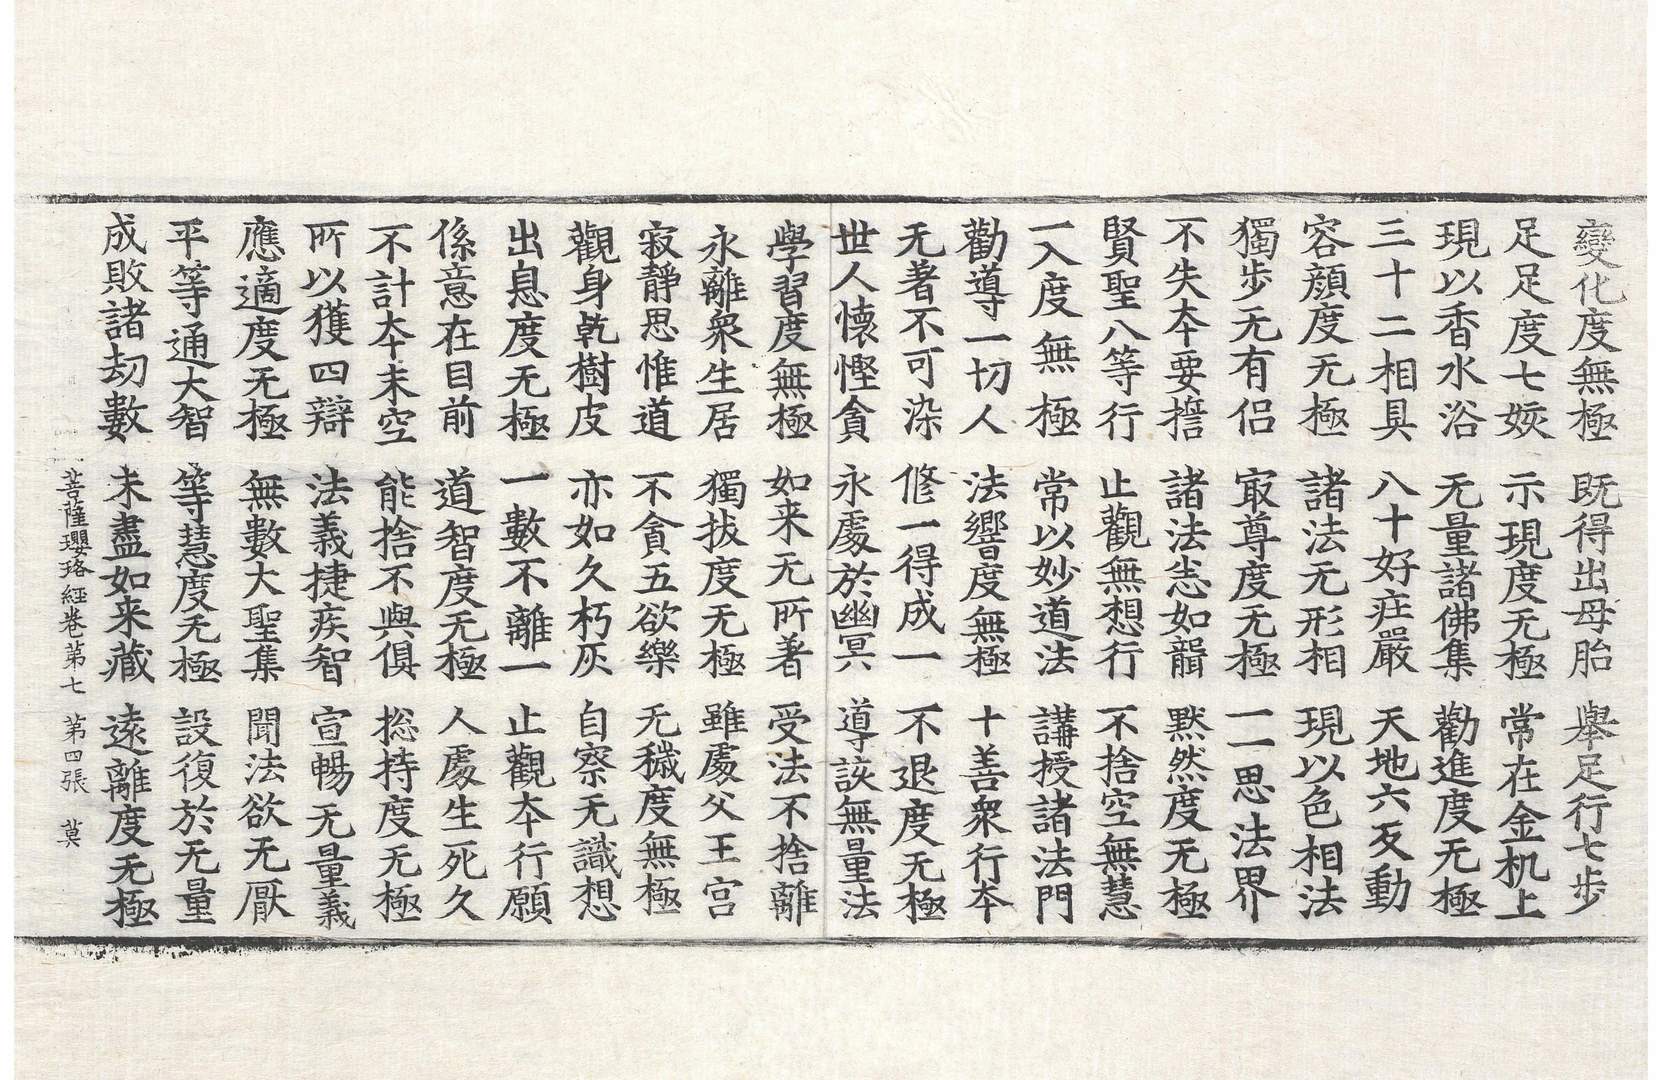 變化度無極　既得出母胎　舉足行七步
足足度七姟　示現度无極　常在金机上
現以香水浴　无量諸佛集　勸進度无極
三十二相具　八十好庄嚴　天地六反動
容顔度无極　諸法无形相　現以色相法
獨步无有侶　冣尊度无極　一一思法界
不失夲要誓　諸法悉如聲　黙然度无極
賢聖八等行　止觀無想行　不捨空無慧
一入度無極　常以妙道法　講授諸法門
勸導一切人　法響度無極　十善衆行夲
无著不可染　修一得成一　不退度无極
世人懷慳貪　永處於幽冥　導該無量法
學習度無極　如来无所著　受法不捨離
永離衆生居　獨拔度无極　雖處父王宫
寂靜思惟道　不貪五欲樂　无穢度無極
觀身乾樹皮　亦如久朽灰　自察无識想
出息度无極　一數不離一　止觀夲行願
係意在目前　道智度无極　人處生死久
不計夲末空　能捨不與俱　捴持度无極
所以獲四辯　法義捷疾智　宣暢无量義
應適度无極　無數大聖集　聞法欲无厭
平等通大智　等慧度无極　設復於无量
成敗諸劫數　未盡如来藏　遠離度无極
菩薩瓔珞經卷第七　第四張　莫